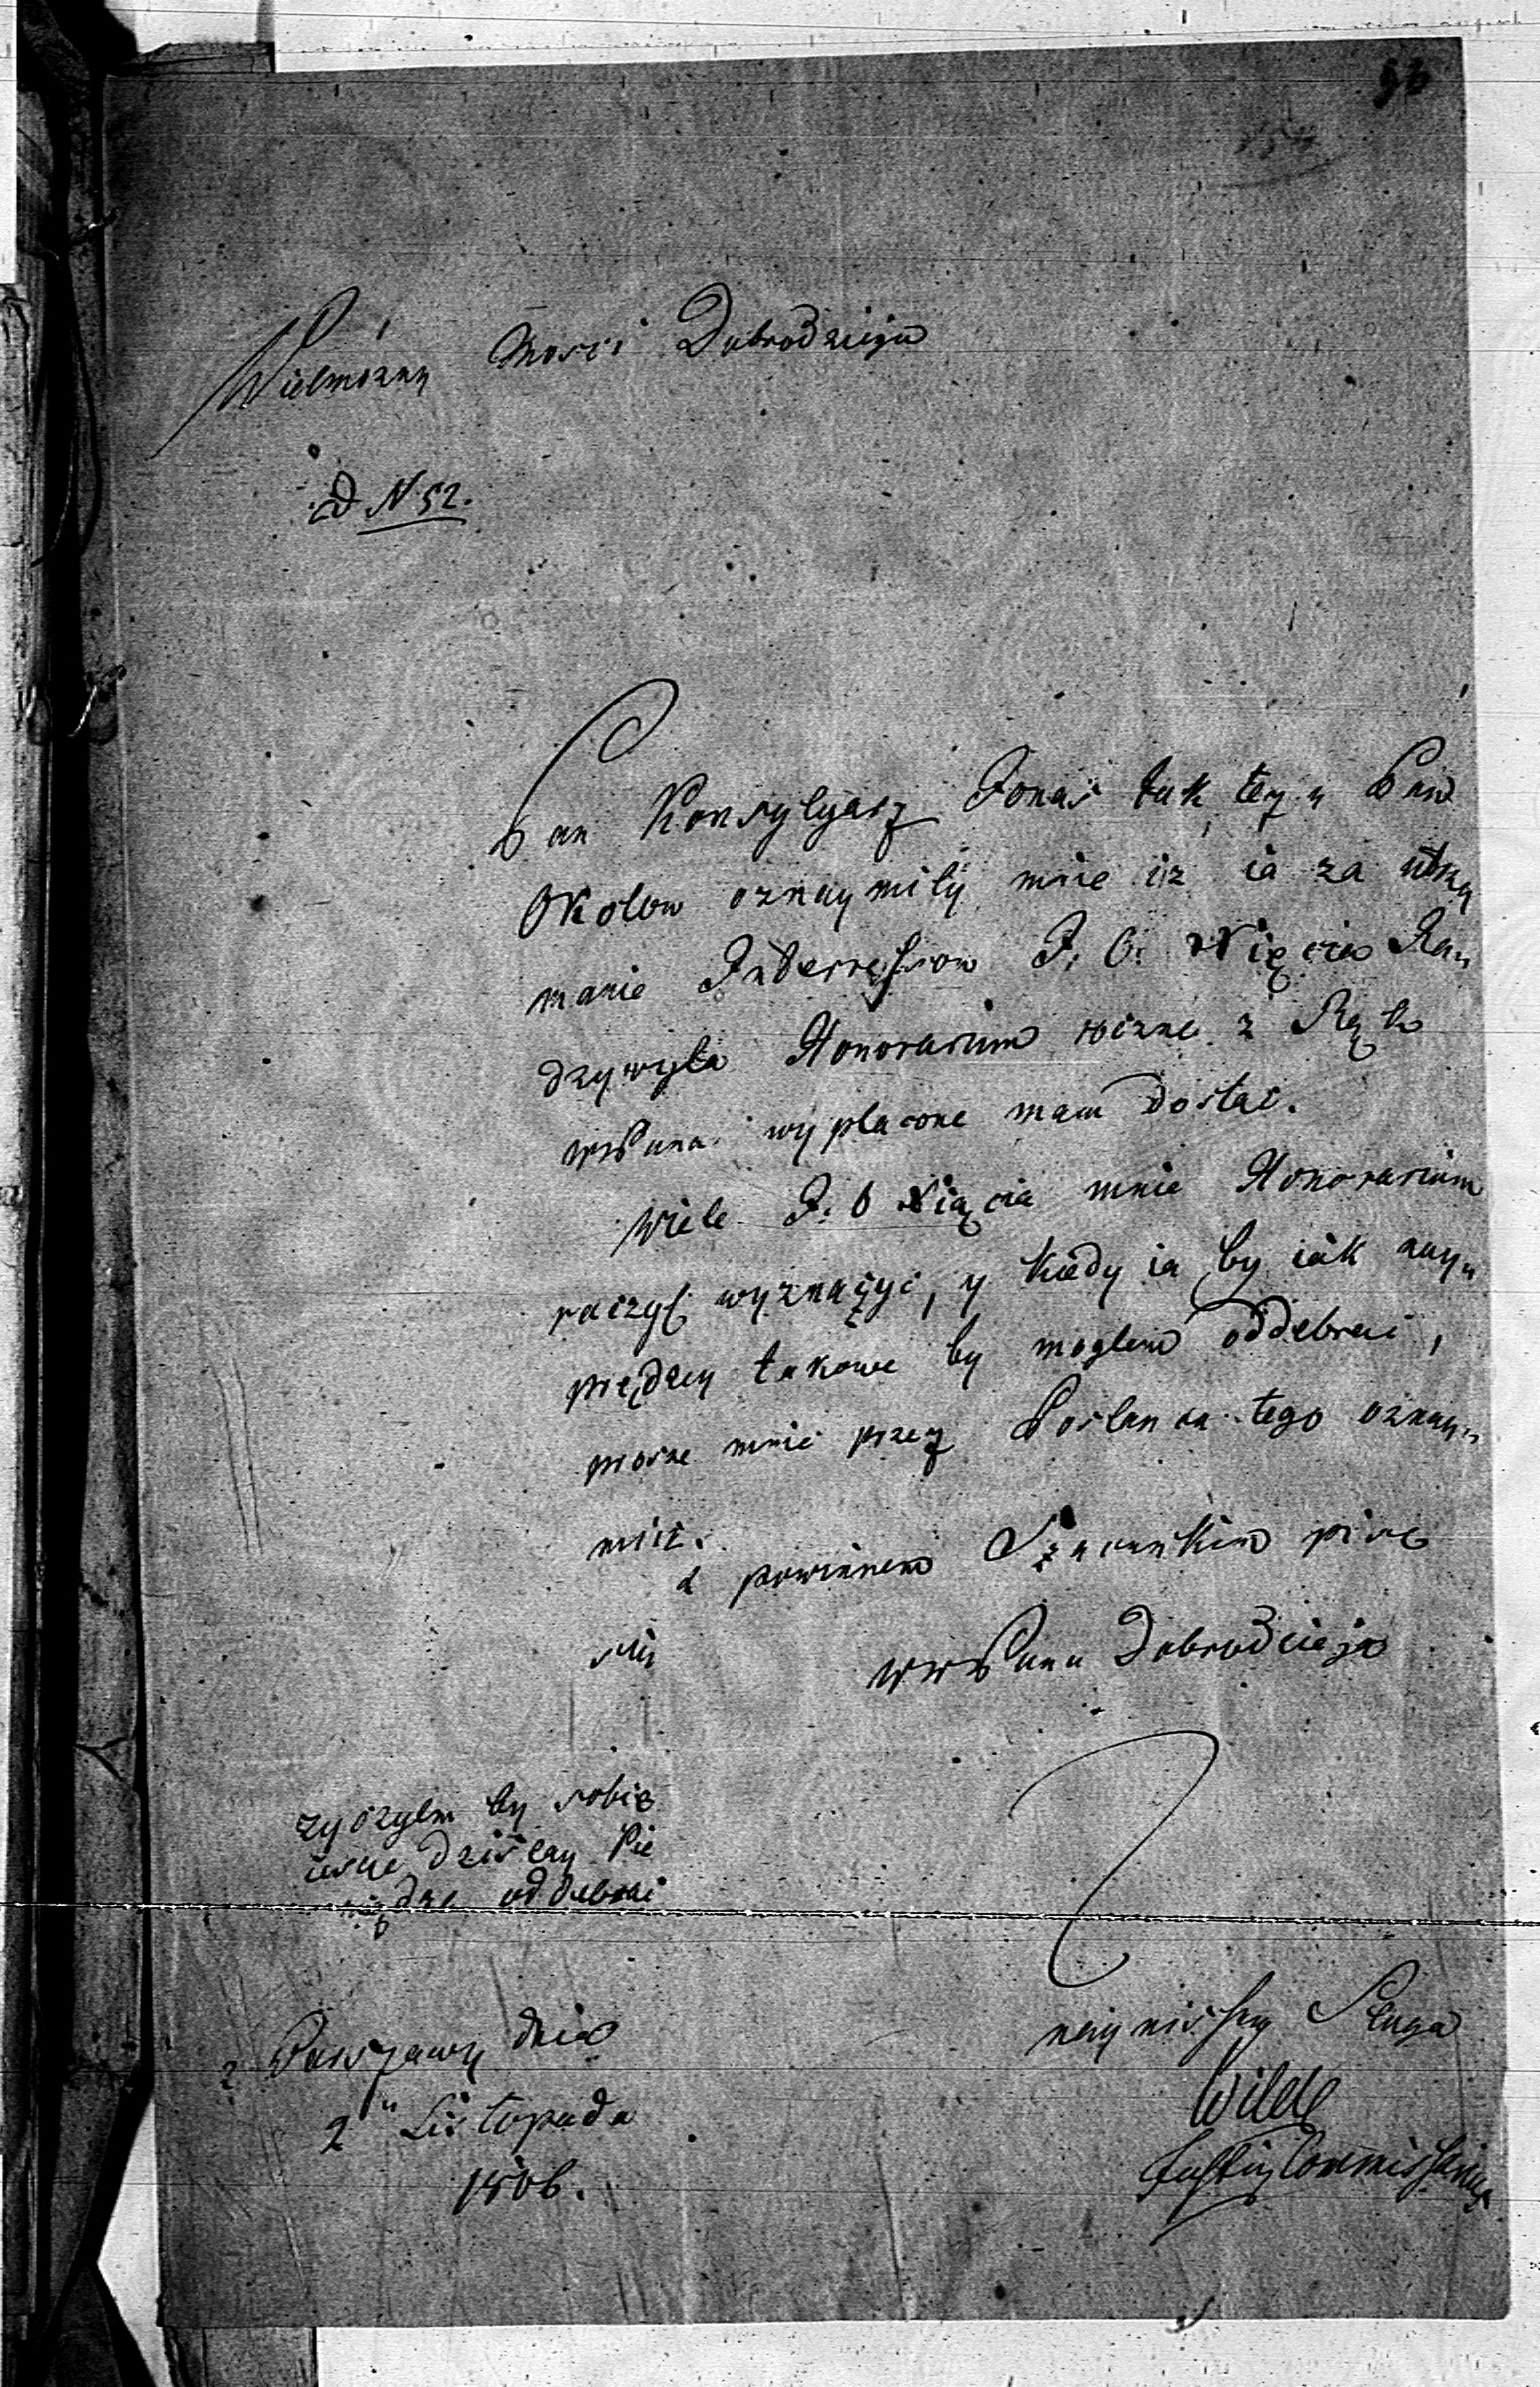 96
Wielmożny Mosci Dobrodzieju
ad N 52.
Pan Konsylyarz Jonas tak tez y Pan
Okolow oznaymily mnie iz ia za utrzy
manie Interressow J. O. Xięcia Ra
dzywyla Honorarium roczne z Rąk
wPana wyplacone mam dostac.
Wiele J. O Xiązcia mnie Honorarium
raczyl wyznaczyc, y kiedy ia by iak nay
prędzey takowe by moglem oddebrac,
prosze mnie przez Poslanca tego oznay
mic.
z powinnem Szacunkiem pisze
się
wwPana Dobrodzieja
zyczylm by sobie
iesce dzisiay Pie
niądze oddebrac
z Warszawy dnia
2" Listopada
1806.
nayniszszy Sluga
Wilde
Justiz Commissarius